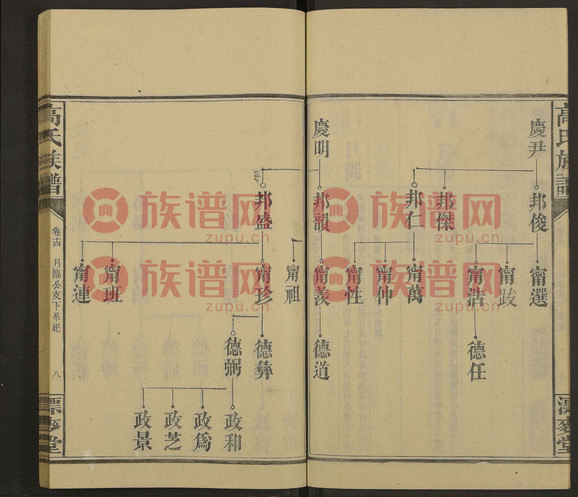 高氏族譜
慶尹
邦俊
甯選
甯跂
邦傑
甯浩
德任
邦仁
甯萬
甯仲
甯性
慶明
邦韻
甯羨
德道
甯祖
邦盛
甯珍
德彝
德弼
政和
政爲
政芝
政景
甯班
甯連
高氏族譜
卷十四 月臨公支下系紀 八
漂麥堂
漂麥堂
族谱网
zupu.cn
族谱网
zupu.cn
族谱网
zupu.cn
族谱网
zupu.cn